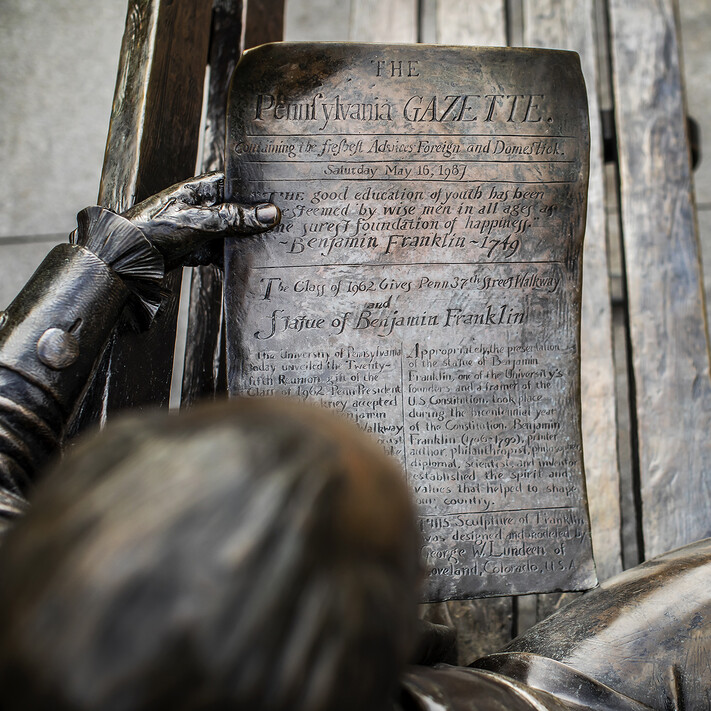 THE
Pennſylvania GAZETTE.
Containing the freſheſt Advices Foreign and Domeſtick.
Saturday May 16, 1987
"THE good education of youth has been
esteemed by wise men in all ages as
the surest foundation of happiness."
~Benjamin Franklin~1749
The Claſſ of 1962 Gives Penn 37th Street Walkway
and
Statue of Benjamin Franklin
The University of Pennsylvania
today unveiled the Twenty-
fifth Reunion gift of the
Class of 1962. Penn President
accepted
Benjamin
Walkway
Appropriately, the presentation
of the statue of Benjamin
Franklin, one of the University's
founders and a framer of the
U.S Constitution, took place
during the bicentennial year
of the Constitution. Benjamin
Franklin (1706-1790), printer
author, philanthropist,
diplomat, scientist, and inventor
established the spirit and
values that helped to shape
our country.
THIS Sculpture of Franklin
was designed and modeled by
George W. Lundeen of
Loveland, Colorado, U.S.A